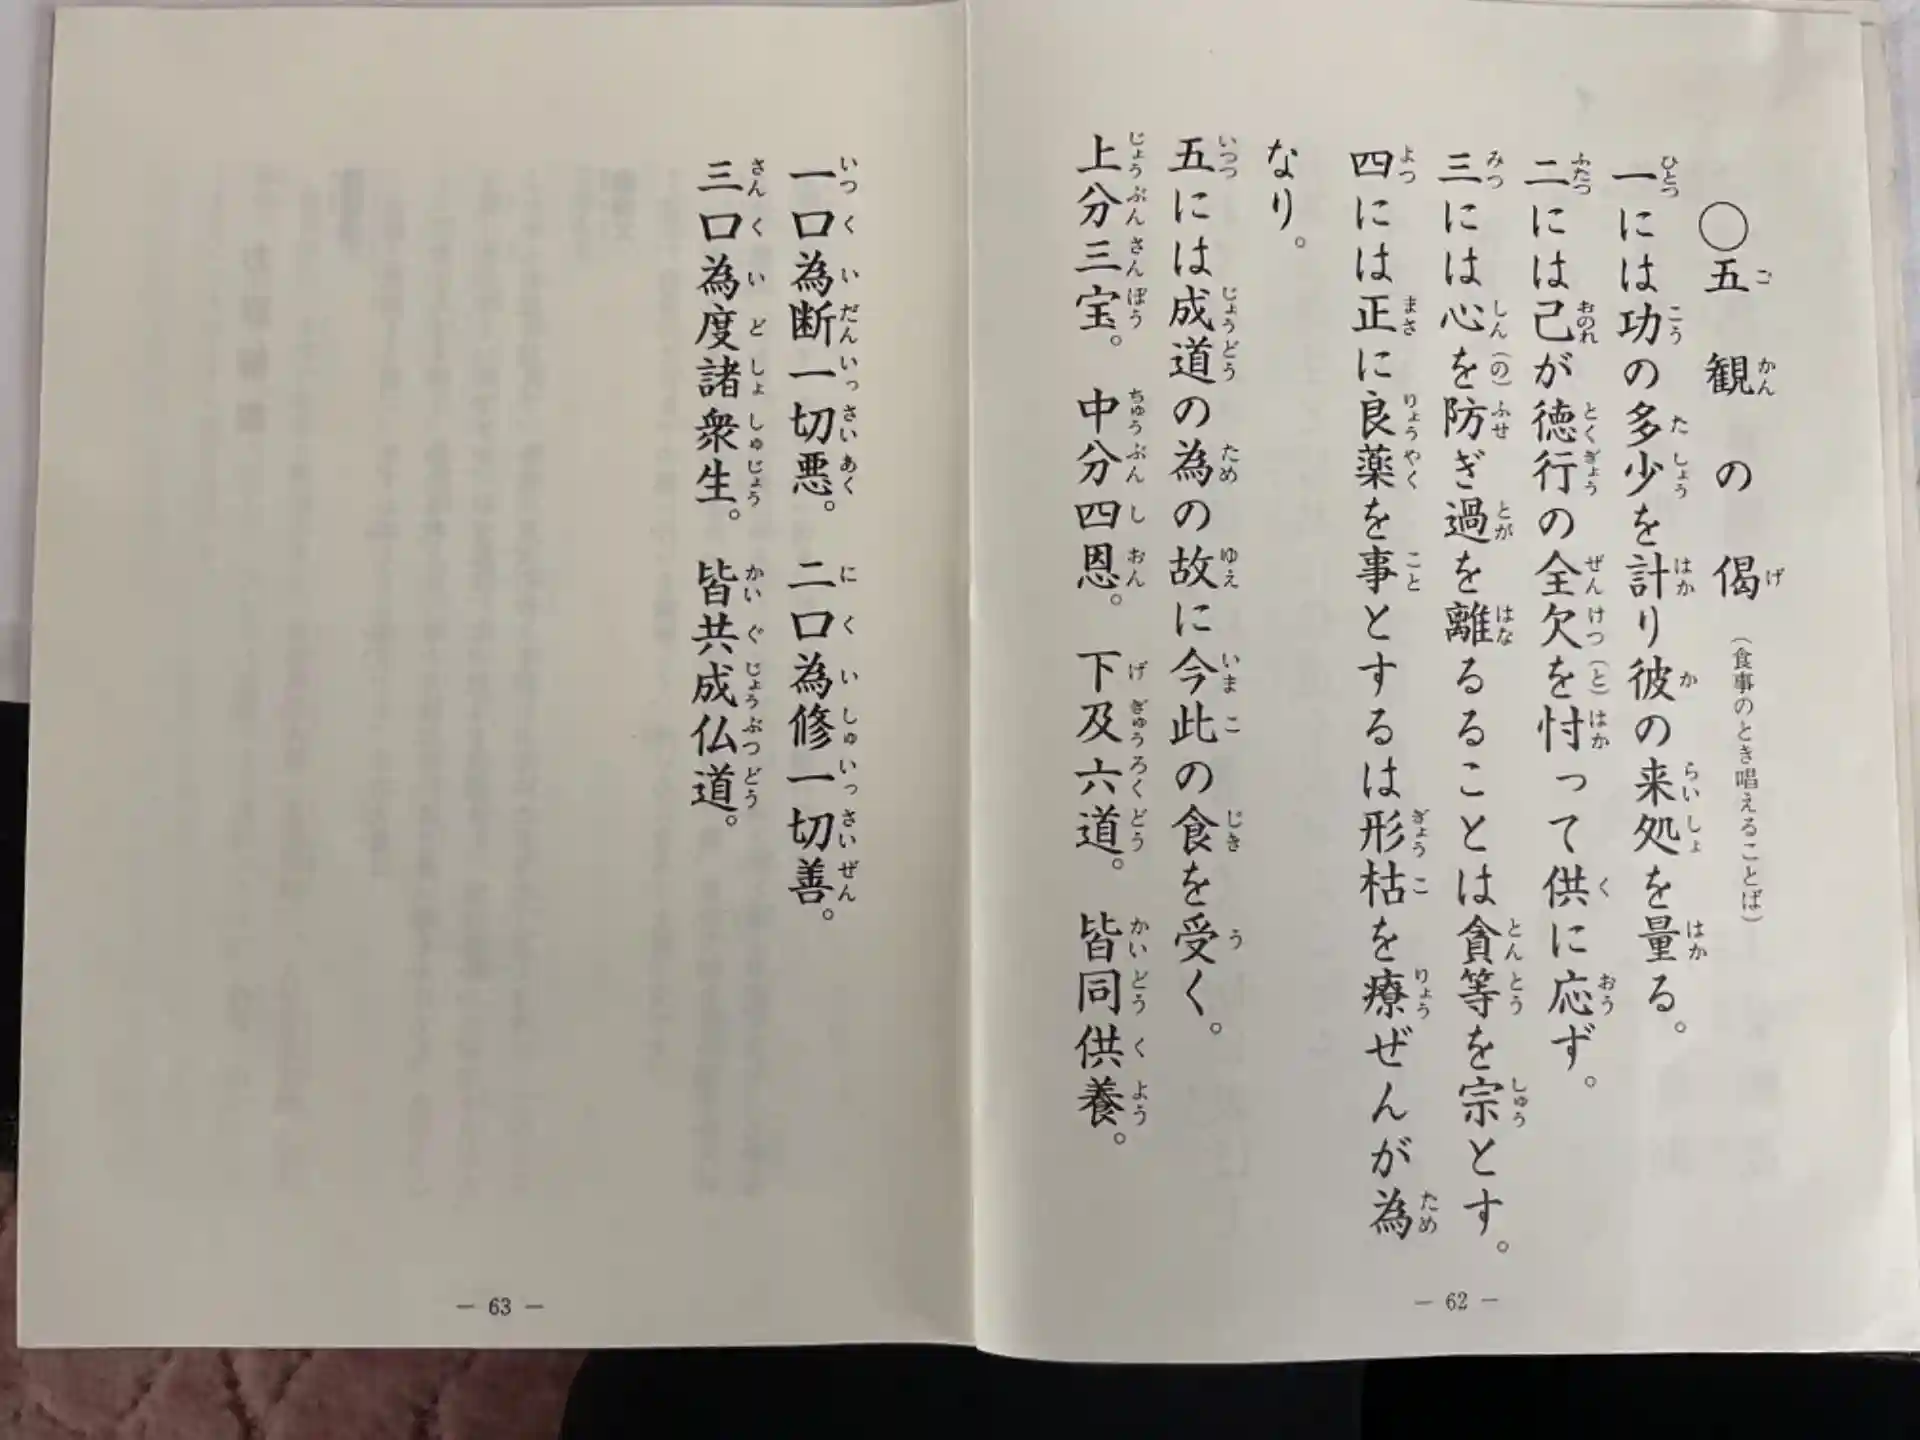 ○五観の偈（食事のとき唱えることば）
一には功の多少を計り彼の来処を量る。
二には己が徳行の全欠を(と)忖って供に応ず。
三には心を(の)防ぎ過を離るることは貪等を宗とす。
四には正に良薬を事とするは形枯を療ぜんが為
なり。
五には成道の為の故に今此の食を受く。
上分三宝。中分四恩。下及六道。皆同供養。
— 62 —
一口為断一切悪。二口為修一切善。
三口為度諸衆生。皆共成仏道。
— 63 —